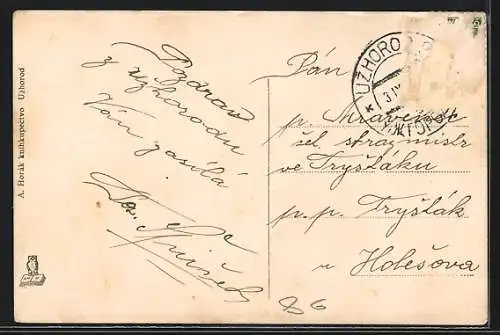 A. Horák knihkupectvo Užhorod
Pozdrav
z Užhorodu
Vám zasílá
UŽHOROD
УЖГОРОД
Pán
p. Mraveneč
žel. strazmistr
ve Tryšťáku
p. p. Tryšťák
u Holešova
86